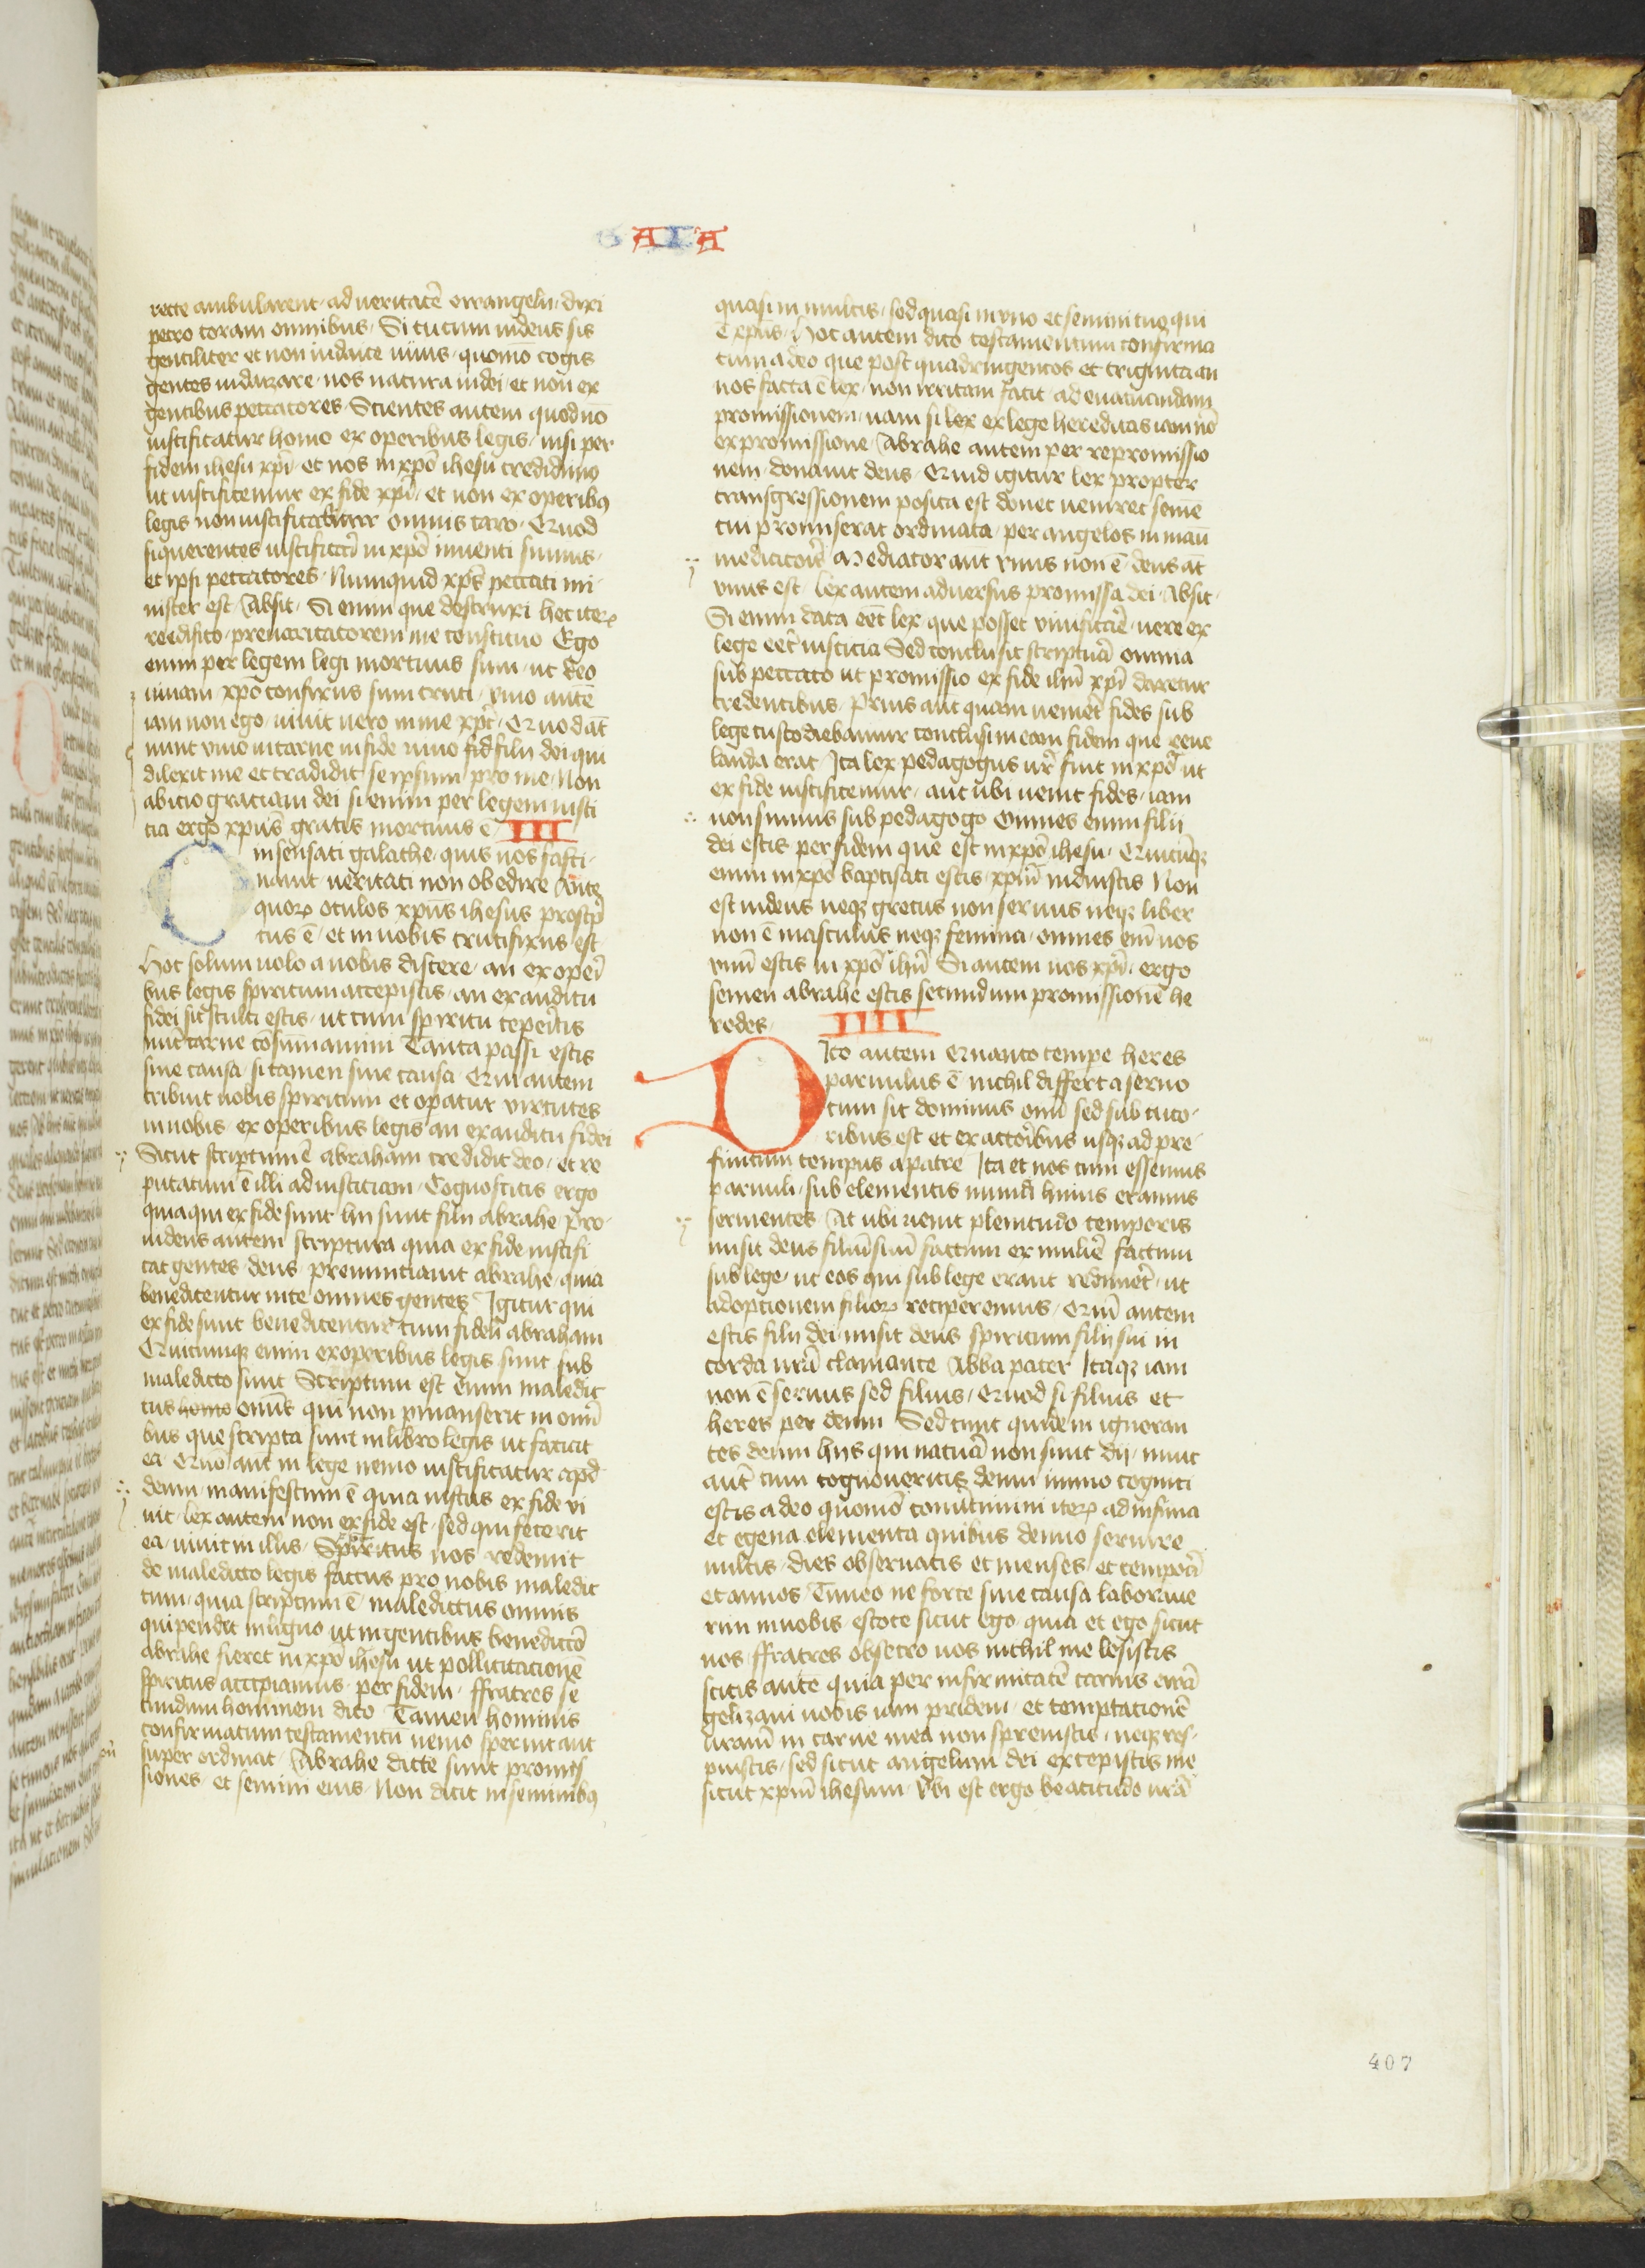 GALA
recte ambularent ad ueritatē ewangelii dixi
petro coram omnibus Si tu cum iudeus sis
gentiliter et non iudaice uiuis quomō cogis
gentes iudaizare nos natura iudei et non ex
gentibus peccatores Scientes autem quod nō
iustificatur homo ex operibus legis nisi per
fidem ihesu xp̄i et nos in xpō ihesu credidimꝰ
ut iustificemur ex fide xp̄i et non ex operibꝰ
legis non iustificabitur omnis caro Quod
si querentes iustificari in xpō inuenti sumus
et ipsi peccatores Numquid xp̄s peccati mi
nister est Absit Si enim que destruxi hec iteꝝ
reedifico preuaricatorem me constituo Ego
enim per legem legi mortuus sum ut deo
uiuam xpō confixus sum cruci viuo autē
iam non ego uiuit uero in me xp̄c Quod āt
nunc viuo in carne in fide viuo filii dei qui
dilexit me et tradidit se ipsum pro me Non
abicio graciam dei si enim per legem iusti
cia ergo xpūs gratis mortuus ē III
O insensati galathe quis uos fasci
nauit ueritati non obedire Ante
quoꝝ oculos xpūs ihesus proscp̄
tus ē et in uobis crucifixus est
Hoc solum uolo a uobis discere an ex operi
bus legis spiritum accepistis an ex auditu
fidei sic stulti estis ut cum spiritu ceperitis
nūc carne cōsummamini Tanta passi estis
sine causa si tamen sine causa Qui autem
tribuit uobis spiritum et opatur virtutes
in uobis ex operibus legis an ex auditu fidei
Sicut scriptum ē abraham credidit deo et re
putatum ē illi ad iusticiam Cognoscitis ergo
quia qui ex fide sunt hii sunt filii abrahe Pro
uidens autem scriptura quia ex fide iustifi
cat gentes deus prenunciauit abrahe quia
benedicentur in te omnes gentes Igitur qui
ex fide sunt benedicentur cum fideli abraham
Quicumqꝫ enim ex operibus legis sunt sub
maledicto sunt Scriptum est enim maledic
tus homo omīs qui non pmanserit in omī
bus que scripta sunt in libro legis ut faciat
ea Quō aut in lege nemo iustificatur apd
deum manifestum ē quia iustus ex fide vi
uit lex autem non ex fide est sed qui fecerit
ea uiuit in illis Spiritus nos redemit
de maledicto legis factus pro nobis maledic
tum quia scriptum ē maledictus omnis
qui pendit in ligno ut in gentibus benedictō
abrahe fieret in xpō ihesu ut pollicitacionē
spiritus accipiamus per fidem ffratres se
cundum hominem dico Tamen hominis
confirmatum testamentū nemo spernit aut
super ordinat Abrahe dicte sunt promis
siones et semini eius Non dicit in seminibꝰ
quasi in multis sed quasi in vno et semini tuo qui
ē xpūs Hoc autem dico testamentum confirma
tum a deo que post quadringentos et triginta an
nos facta ē lex non irritam facit ad euacuandam
promissionem nam si lex ex lege hereditas iam nō
ex promissione Abrahe autem per repromissio
nem donauit deus Quid igitur lex propter
transgressionem posita est donec ueniret semē
cui promiserat ordinata per angelos in manu
mediatoris Mediator aut vnius non ē deus āt
vnus est lex autem aduersus promissa dei Absit
Si enim data eēt lex que posset viuificare uere ex
lege eēt iusticia Sed conclusit scriptura omnia
sub peccato ut promissio ex fide ihū xp̄i daretur
credentibus Prius aūt quam ueniret fides sub
lege custodiebamur conclusi in eam fidem que reue
landa erat Ita lex pedagogus nr̄ fuit in xpō ut
ex fide iustificemur aut ubi uenit fides iam
non sumus sub pedagogo Omnes enim filii
dei estis per fidem que est in xpō ihesu Quicūqꝫ
enim in xpō baptisati estis xpm̄ induistis Non
est iudeus neqꝫ grecus non seruus neqꝫ liber
non ē masculus neqꝫ femina omnes enī uos
vnū estis in xpō ihū Si autem uos xp̄i ergo
semen abrahe estis secundum promissionē he
redes IIII
Dico autem Quanto tempe heres
paruulus ē nichil differt a seruo
cum sit dominus omī sed sub tuto
ribus est et ex actoribus usqꝫ ad pre
finitum tempus a patre Ita et nos cum essemus
paruuli sub elementis mundi huius eramus
seruientes At ubi uenit plenitudo temporis
misit deus filiū suū factum ex muliē factum
sub lege ut eos qui sub lege erant redimeret ut
adoptionem filioꝝ reciperemus Qum̄ autem
estis filii dei misit deus spiritum filii sui in
corda urā clamante Abba pater Itaqꝫ iam
non ē seruus sed filius Quod si filius et
heres per deum Sed tunc quidem ignoran
tes deum hys qui natura non sunt dij nunc
aut cum cognoueritis deum immo cogniti
estis a deo quomō conuertimini iteꝝ ad infirma
et egena elementa quibus denuo seruire
uultis dies obseruatis et menses et tempora
et annos Timeo ne forte sine causa laboraue
rim in uobis estote sicut ego quia et ego sicut
uos ffratres obsecro uos nichil me lesistis
scitis autē quia per infirmitatē carnis ewā
gelizaui uobis iam pridem et temptationē
urām in carne mea non spreuistis neqꝫ res
puistis sed sicut angelum dei excepistis me
sicut xpm̄ ihesum Vbi est ergo beatitudo urā
407